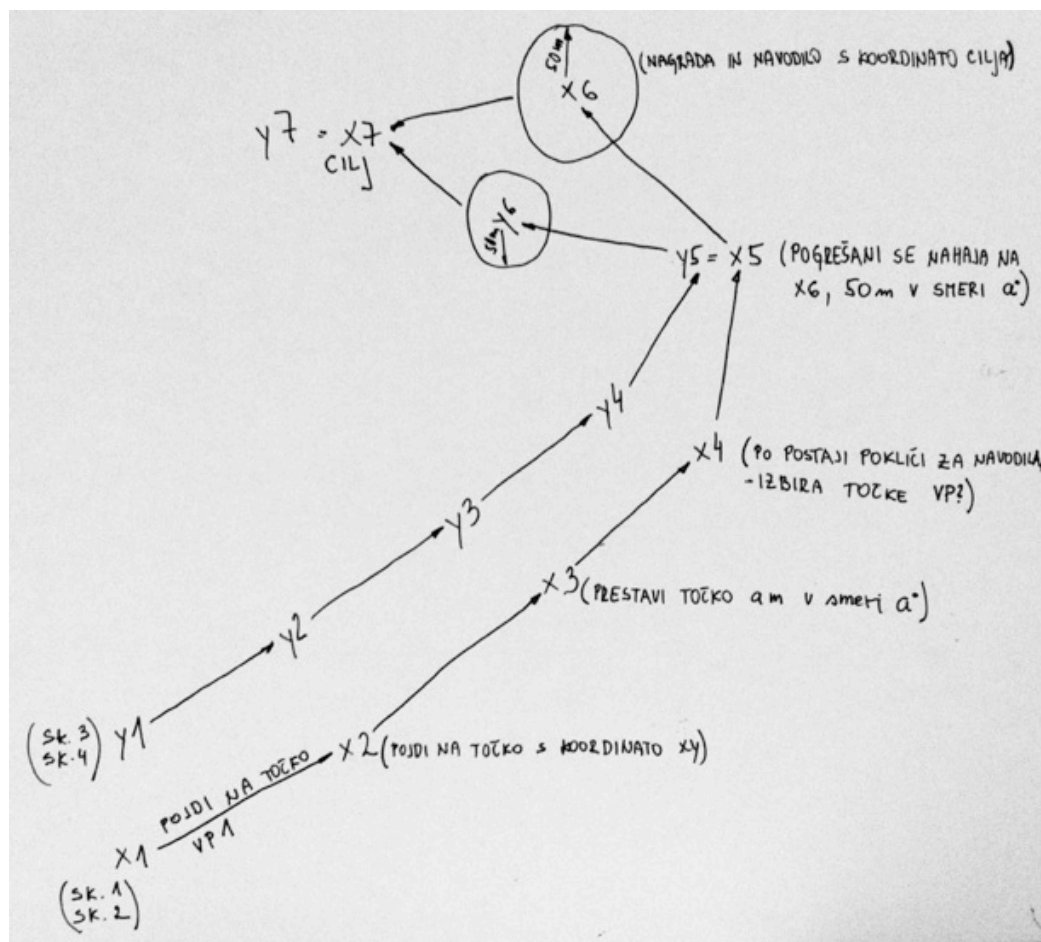 50m
X6
(NAGRADA IN NAVODILO S KOORDINATO CILJA)
Y7 = X7
CILJ
Y6
50m
Y5 = X5 (POGREŠANI SE NAHAJA NA
X6, 50m V SMERI a°)
Y4
X4 (PO POSTAJI POKLIČI ZA NAVODILA,
- IZBIRA TOČKE VP?)
Y3
X3 (PRESTAVI TOČKO am v smeri a°)
Y2
(SK. 3
SK. 4) Y1
X2 (POJDI NA TOČKO S KOORDINATO XY)
POJDI NA TOČKO
VP1
X1
(SK. 1
SK. 2)